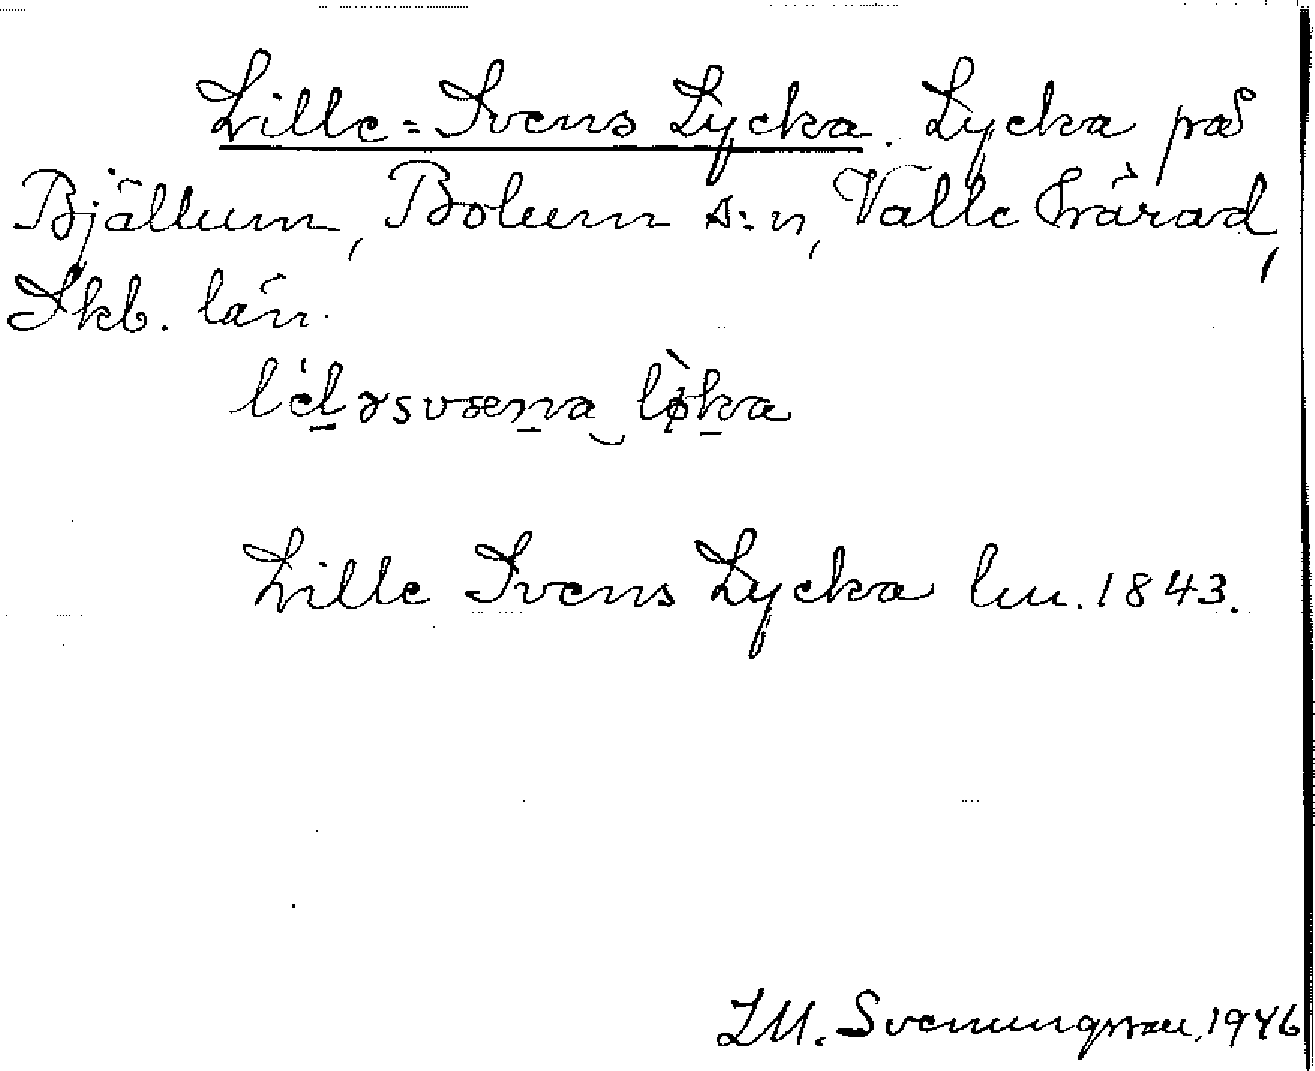 Lille-Svens Lycka. Lycka på
Bjällum, Bolum s:n, Valle härad,
Skb. län.
Lille Svens Lycka lm. 1843.
Svenungsson, 1946